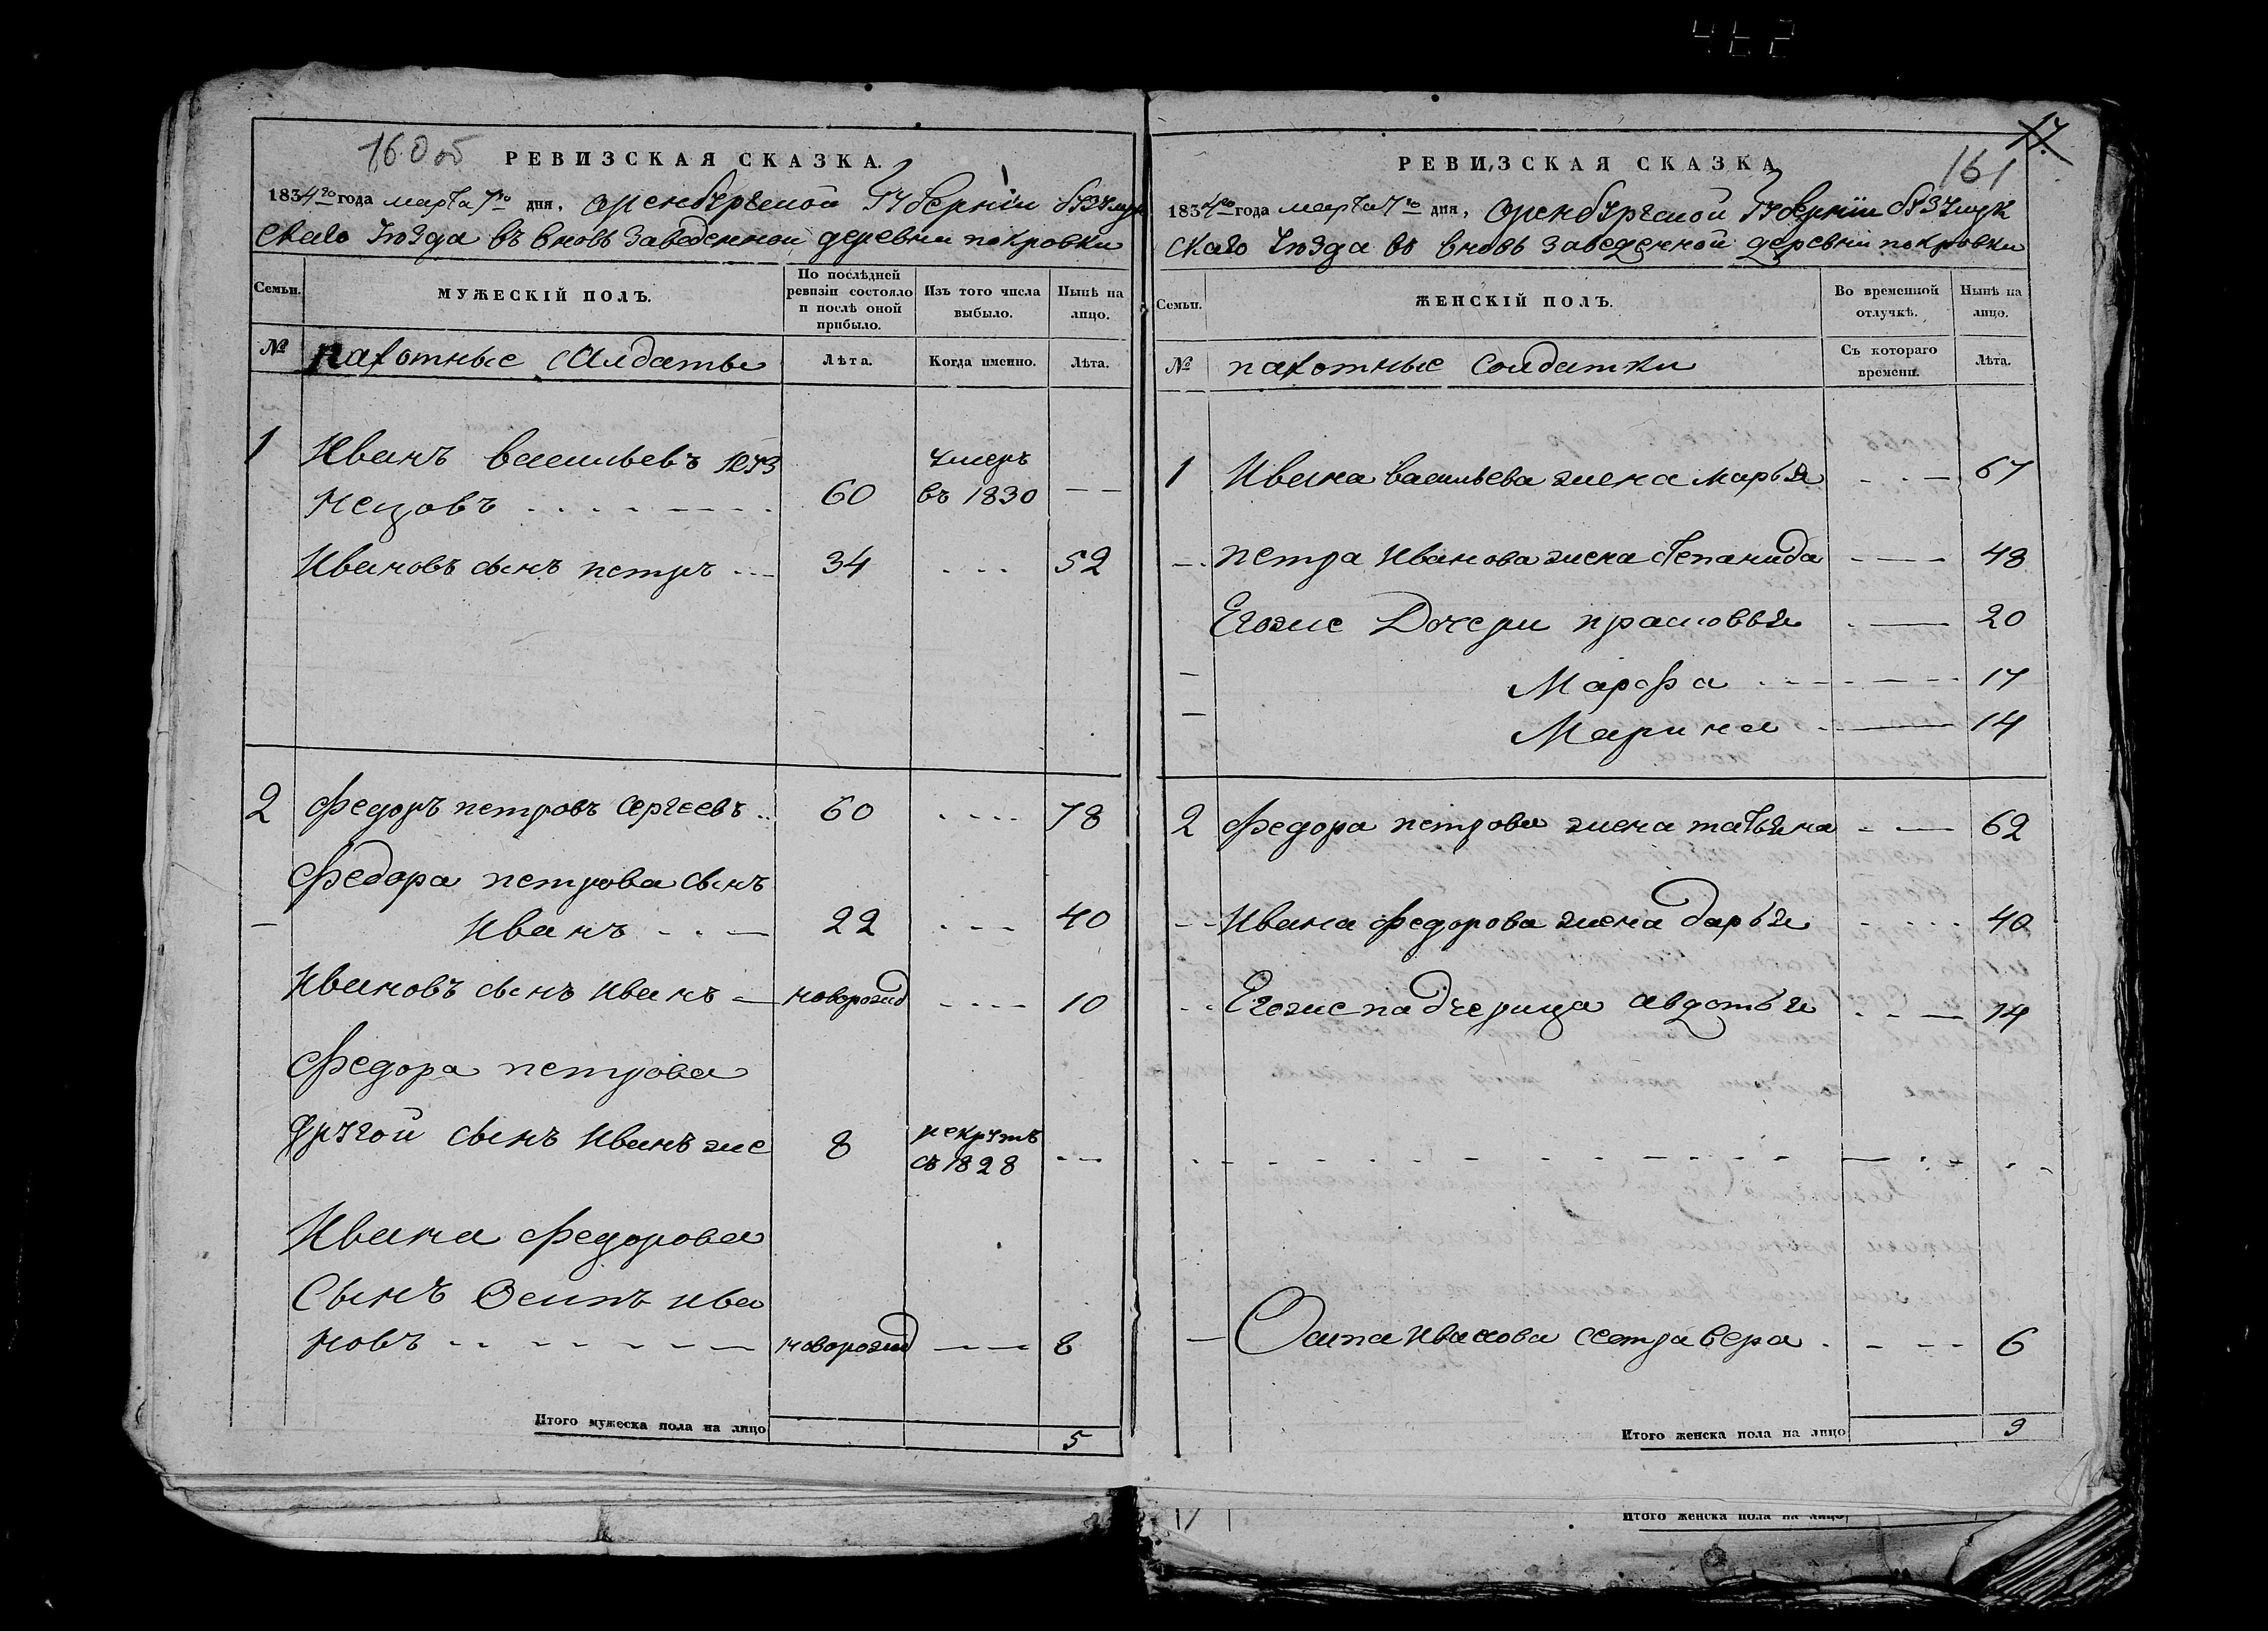 160 об
РЕВИЗСКАЯ СКАЗКА.
1834го года марта 7го дня, Оренбургской Губернии бузулук
скаго уѣзда въ вновь заведенной деревни покровки
Семьи.
МУЖЕСКІЙ ПОЛЪ.
По послѣдней ревизіи состояло и послѣ оной прибыло.
Изъ того числа выбыло.
Нынѣ на лицо.
№
пахотные Салдаты
Лѣта.
Когда именно.
Лѣта.
1 Иванъ васильевъ куз
нецовъ 60 умеръ въ 1830 — —
Ивановъ сынъ петръ 34 52
2 Федоръ петровъ Сергеевъ 60 78
Федора петрова сынъ
Иванъ 22 40
Ивановъ сынъ Иванъ новорожд 10
Федора петрова
другой сынъ Иванъ же 8 рекрутъ съ 1828
Ивана Федорова
Сынъ Осипъ ива
новъ новорожд 8
Итого мужеска пола на лицо 5
17
161
РЕВИЗСКАЯ СКАЗКА
1834го года марта 7го дня, Оренбургской Губернии бузулук
скаго уѣзда во вновь заведенной деревни покровки
Семьи.
ЖЕНСКІЙ ПОЛЪ.
Во временной отлучкѣ.
Нынѣ на лицо.
№
пахотные солдатки
Съ котораго времени.
Лѣта.
1 Ивана васильева жена марья 67
петра Иванова жена степанида 48
Егоже Дочери прасковья 20
Марфа 17
Марина 14
2 Федора петрова жена татьяна 62
Ивана федорова жена дарья 40
Егоже падчерица авдотья 14
Осипа иванова сестра вера 6
Итого женска пола на лицо 9
Итого женска пола на лицо